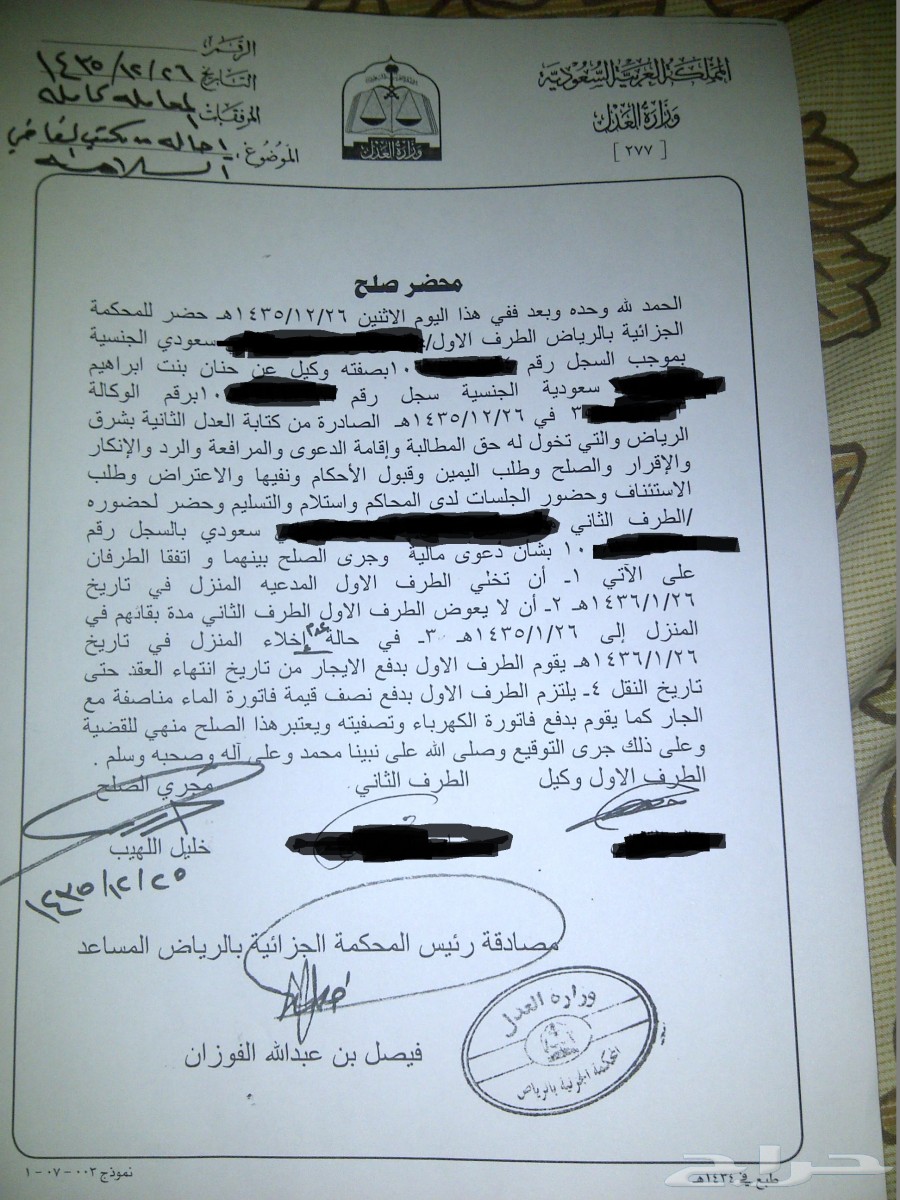 المملكة العربية السعودية
وزارة العدل
[ ٢٧٧ ]
وزارة العدل
الرقم:
التاريخ ١٤٣٥/١٢/٢٦
المرفقات: لمعامله كامله
الموضوع: احاله
محضر صلح
الحمد لله وحده وبعد ففي هذا اليوم الاثنين ١٤٣٥/١٢/٢٦هـ حضر للمحكمة
الجزائية بالرياض الطرف الاول/ سعودي الجنسية
بموجب السجل رقم ١٠ بصفته وكيل عن حنان بنت ابراهيم
سعودية الجنسية سجل رقم ١٠ برقم الوكالة
٣ في ١٤٣٥/١٢/٢٦هـ الصادرة من كتابة العدل الثانية بشرق
الرياض والتي تخول له حق المطالبة وإقامة الدعوى والمرافعة والرد والإنكار
والإقرار والصلح وطلب اليمين وقبول الأحكام ونفيها والاعتراض وطلب
الاستئناف وحضور الجلسات لدى المحاكم واستلام والتسليم وحضر لحضوره
/الطرف الثاني سعودي بالسجل رقم
١٠ بشأن دعوى مالية وجرى الصلح بينهما و اتفقا الطرفان
على الآتي ١- أن تخلي الطرف الاول المدعيه المنزل في تاريخ
١٤٣٦/١/٢٦هـ ٢- أن لا يعوض الطرف الاول الطرف الثاني مدة بقائهم في
المنزل إلى ١٤٣٥/١/٢٦هـ ٣- في حالة عدم إخلاء المنزل في تاريخ
١٤٣٦/١/٢٦هـ يقوم الطرف الاول بدفع الايجار من تاريخ انتهاء العقد حتى
تاريخ النقل ٤- يلتزم الطرف الاول بدفع نصف قيمة فاتورة الماء مناصفة مع
الجار كما يقوم بدفع فاتورة الكهرباء وتصفيته ويعتبر هذا الصلح منهي للقضية
وعلى ذلك جرى التوقيع وصلى الله على نبينا محمد وعلى آله وصحبه وسلم .
الطرف الاول وكيل الطرف الثاني مُجري الصلح
خليل اللهيب
١٤٣٥/١٢/٢٥
مصادقة رئيس المحكمة الجزائية بالرياض المساعد
فيصل بن عبدالله الفوزان
وزارة العدل
المحكمة الجزئية بالرياض
طبع في ١٤٣٤هـ
نموذج ٠٠٢ - ٠٧ - ٠١
حراج